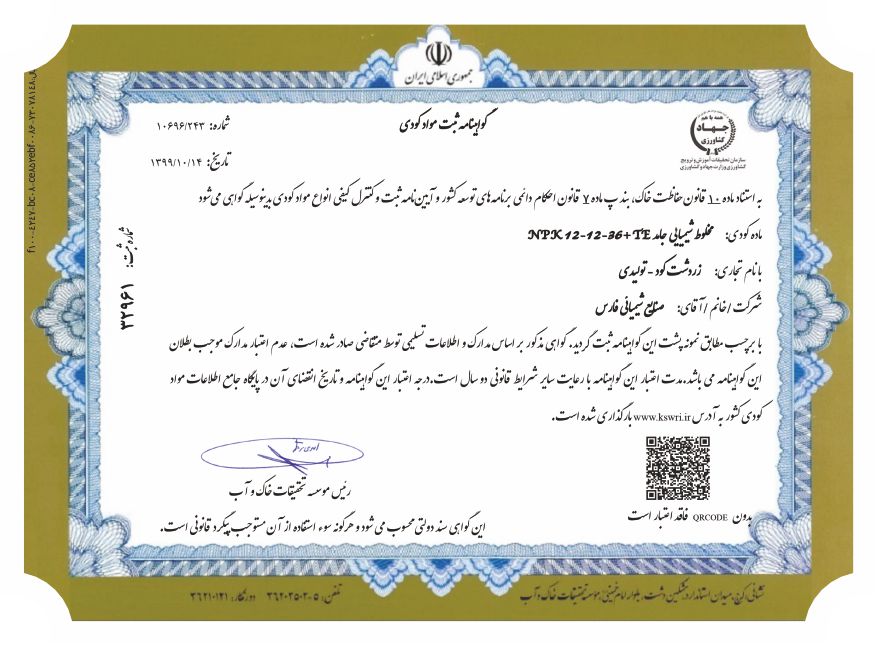 جمهوری اسلامی ایران
گواهینامه ثبت مواد کودی
شماره: ۱۰۶۹۶/۲۴۳
تاریخ: ۱۳۹۹/۱۰/۱۴
همه با هم
جهاد
کشاورزی
سازمان تحقیقات آموزش و ترویج
کشاورزی وزارت جهاد کشاورزی
به استناد ماده ۱۰ قانون حفاظت خاک، بند پ ماده ۷ قانون احکام دائمی برنامه های توسعه کشور و آیین نامه ثبت و کنترل کیفی انواع مواد کودی بدینوسیله گواهی می شود
ماده کودی: مخلوط شیمیایی جامد NPK 12-12-36+TE
با نام تجاری: زردشت کود - تولیدی
شرکت / خانم / آقای: صنایع شیمیائی فارس
با برچسب مطابق نمونه پشت این گواهینامه ثبت گردید. گواهی مذکور بر اساس مدارک و اطلاعات تسلیمی توسط متقاضی صادر شده است، عدم اعتبار مدارک موجب بطلان
این گواهینامه می باشد. مدت اعتبار این گواهینامه با رعایت سایر شرایط قانونی دو سال است. درجه اعتبار این گواهینامه و تاریخ انقضای آن در پایگاه جامع اطلاعات مواد
کودی کشور به آدرس www.kswri.ir بارگذاری شده است.
شماره ثبت:
۳۲۹۶۱
رئیس موسسه تحقیقات خاک و آب
بدون QRCODE فاقد اعتبار است
این گواهی سند دولتی محسوب می شود و هرگونه سوء استفاده از آن مستوجب پیگرد قانونی است.
نشانی: کرج، میدان استاندارد، مشکین دشت، بلوار امام خمینی، موسسه تحقیقات خاک و آب
تلفن: ۵-۳۶۲۰۲۵۰۲ دورنگار: ۳۶۲۱۰۱۲۱